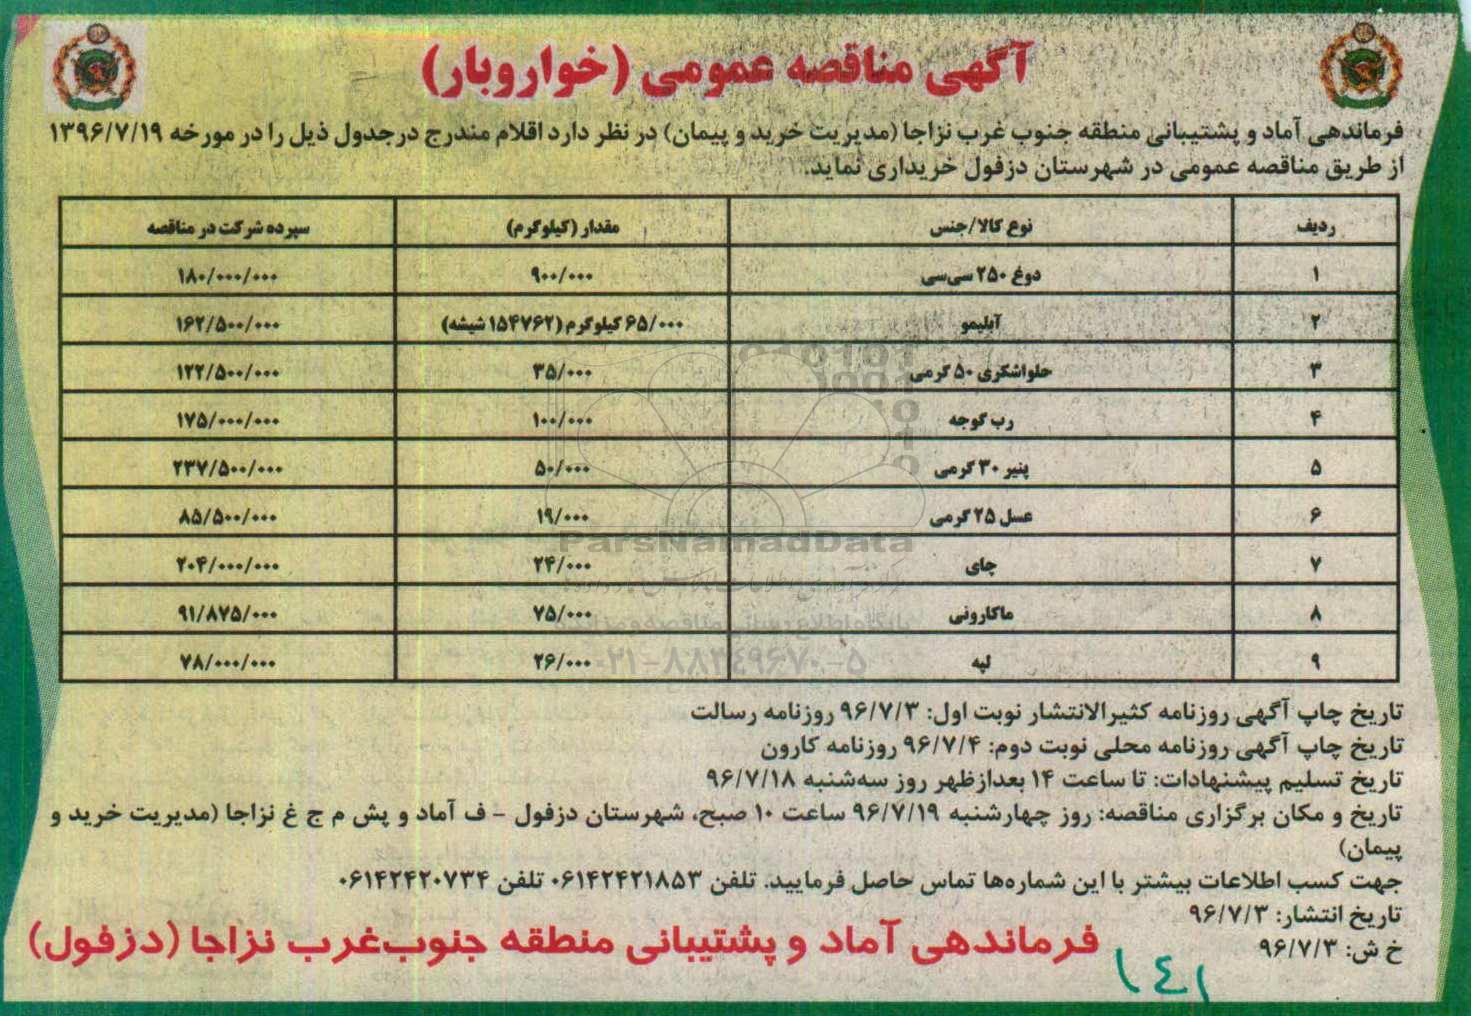 آگهی مناقصه عمومی (خواروبار)
فرماندهی آماد و پشتیبانی منطقه جنوب غرب نزاجا (مدیریت خرید و پیمان) در نظر دارد اقلام مندرج درجدول ذیل را در مورخه ۱۳۹۶/۷/۱۹
از طریق مناقصه عمومی در شهرستان دزفول خریداری نماید.
ردیف نوع کالا/جنس مقدار (کیلوگرم) سپرده شرکت در مناقصه
۱ دوغ ۲۵۰ سی‌سی ۹۰۰/۰۰۰ ۱۸۰/۰۰۰/۰۰۰
۲ آبلیمو ۶۵/۰۰۰ کیلوگرم (۱۵۴۷۶۲ شیشه) ۱۶۲/۵۰۰/۰۰۰
۳ حلواشکری ۵۰ گرمی ۳۵/۰۰۰ ۱۲۲/۵۰۰/۰۰۰
۴ رب گوجه ۱۰۰/۰۰۰ ۱۷۵/۰۰۰/۰۰۰
۵ پنیر ۳۰ گرمی ۵۰/۰۰۰ ۲۳۷/۵۰۰/۰۰۰
۶ عسل ۲۵ گرمی ۱۹/۰۰۰ ۸۵/۵۰۰/۰۰۰
ParsNamadData
۷ چای ۲۴/۰۰۰ ۲۰۴/۰۰۰/۰۰۰
۸ ماکارونی ۷۵/۰۰۰ ۹۱/۸۷۵/۰۰۰
۹ لپه ۲۶/۰۰۰ ۷۸/۰۰۰/۰۰۰
۰۲۱-۸۸۳۴۹۶۷۰-۵
تاریخ چاپ آگهی روزنامه کثیرالانتشار نوبت اول: ۹۶/۷/۳ روزنامه رسالت
تاریخ چاپ آگهی روزنامه محلی نوبت دوم: ۹۶/۷/۴ روزنامه کارون
تاریخ تسلیم پیشنهادات: تا ساعت ۱۴ بعدازظهر روز سه‌شنبه ۹۶/۷/۱۸
تاریخ و مکان برگزاری مناقصه: روز چهارشنبه ۹۶/۷/۱۹ ساعت ۱۰ صبح، شهرستان دزفول - ف آماد و پش م ج غ نزاجا (مدیریت خرید و
پیمان)
جهت کسب اطلاعات بیشتر با این شماره‌ها تماس حاصل فرمایید. تلفن ۰۶۱۴۲۴۲۱۸۵۳ تلفن ۰۶۱۴۲۴۲۰۷۳۴
تاریخ انتشار: ۹۶/۷/۳
خ ش: ۹۶/۷/۳
فرماندهی آماد و پشتیبانی منطقه جنوب‌غرب نزاجا (دزفول)
۱۴۱